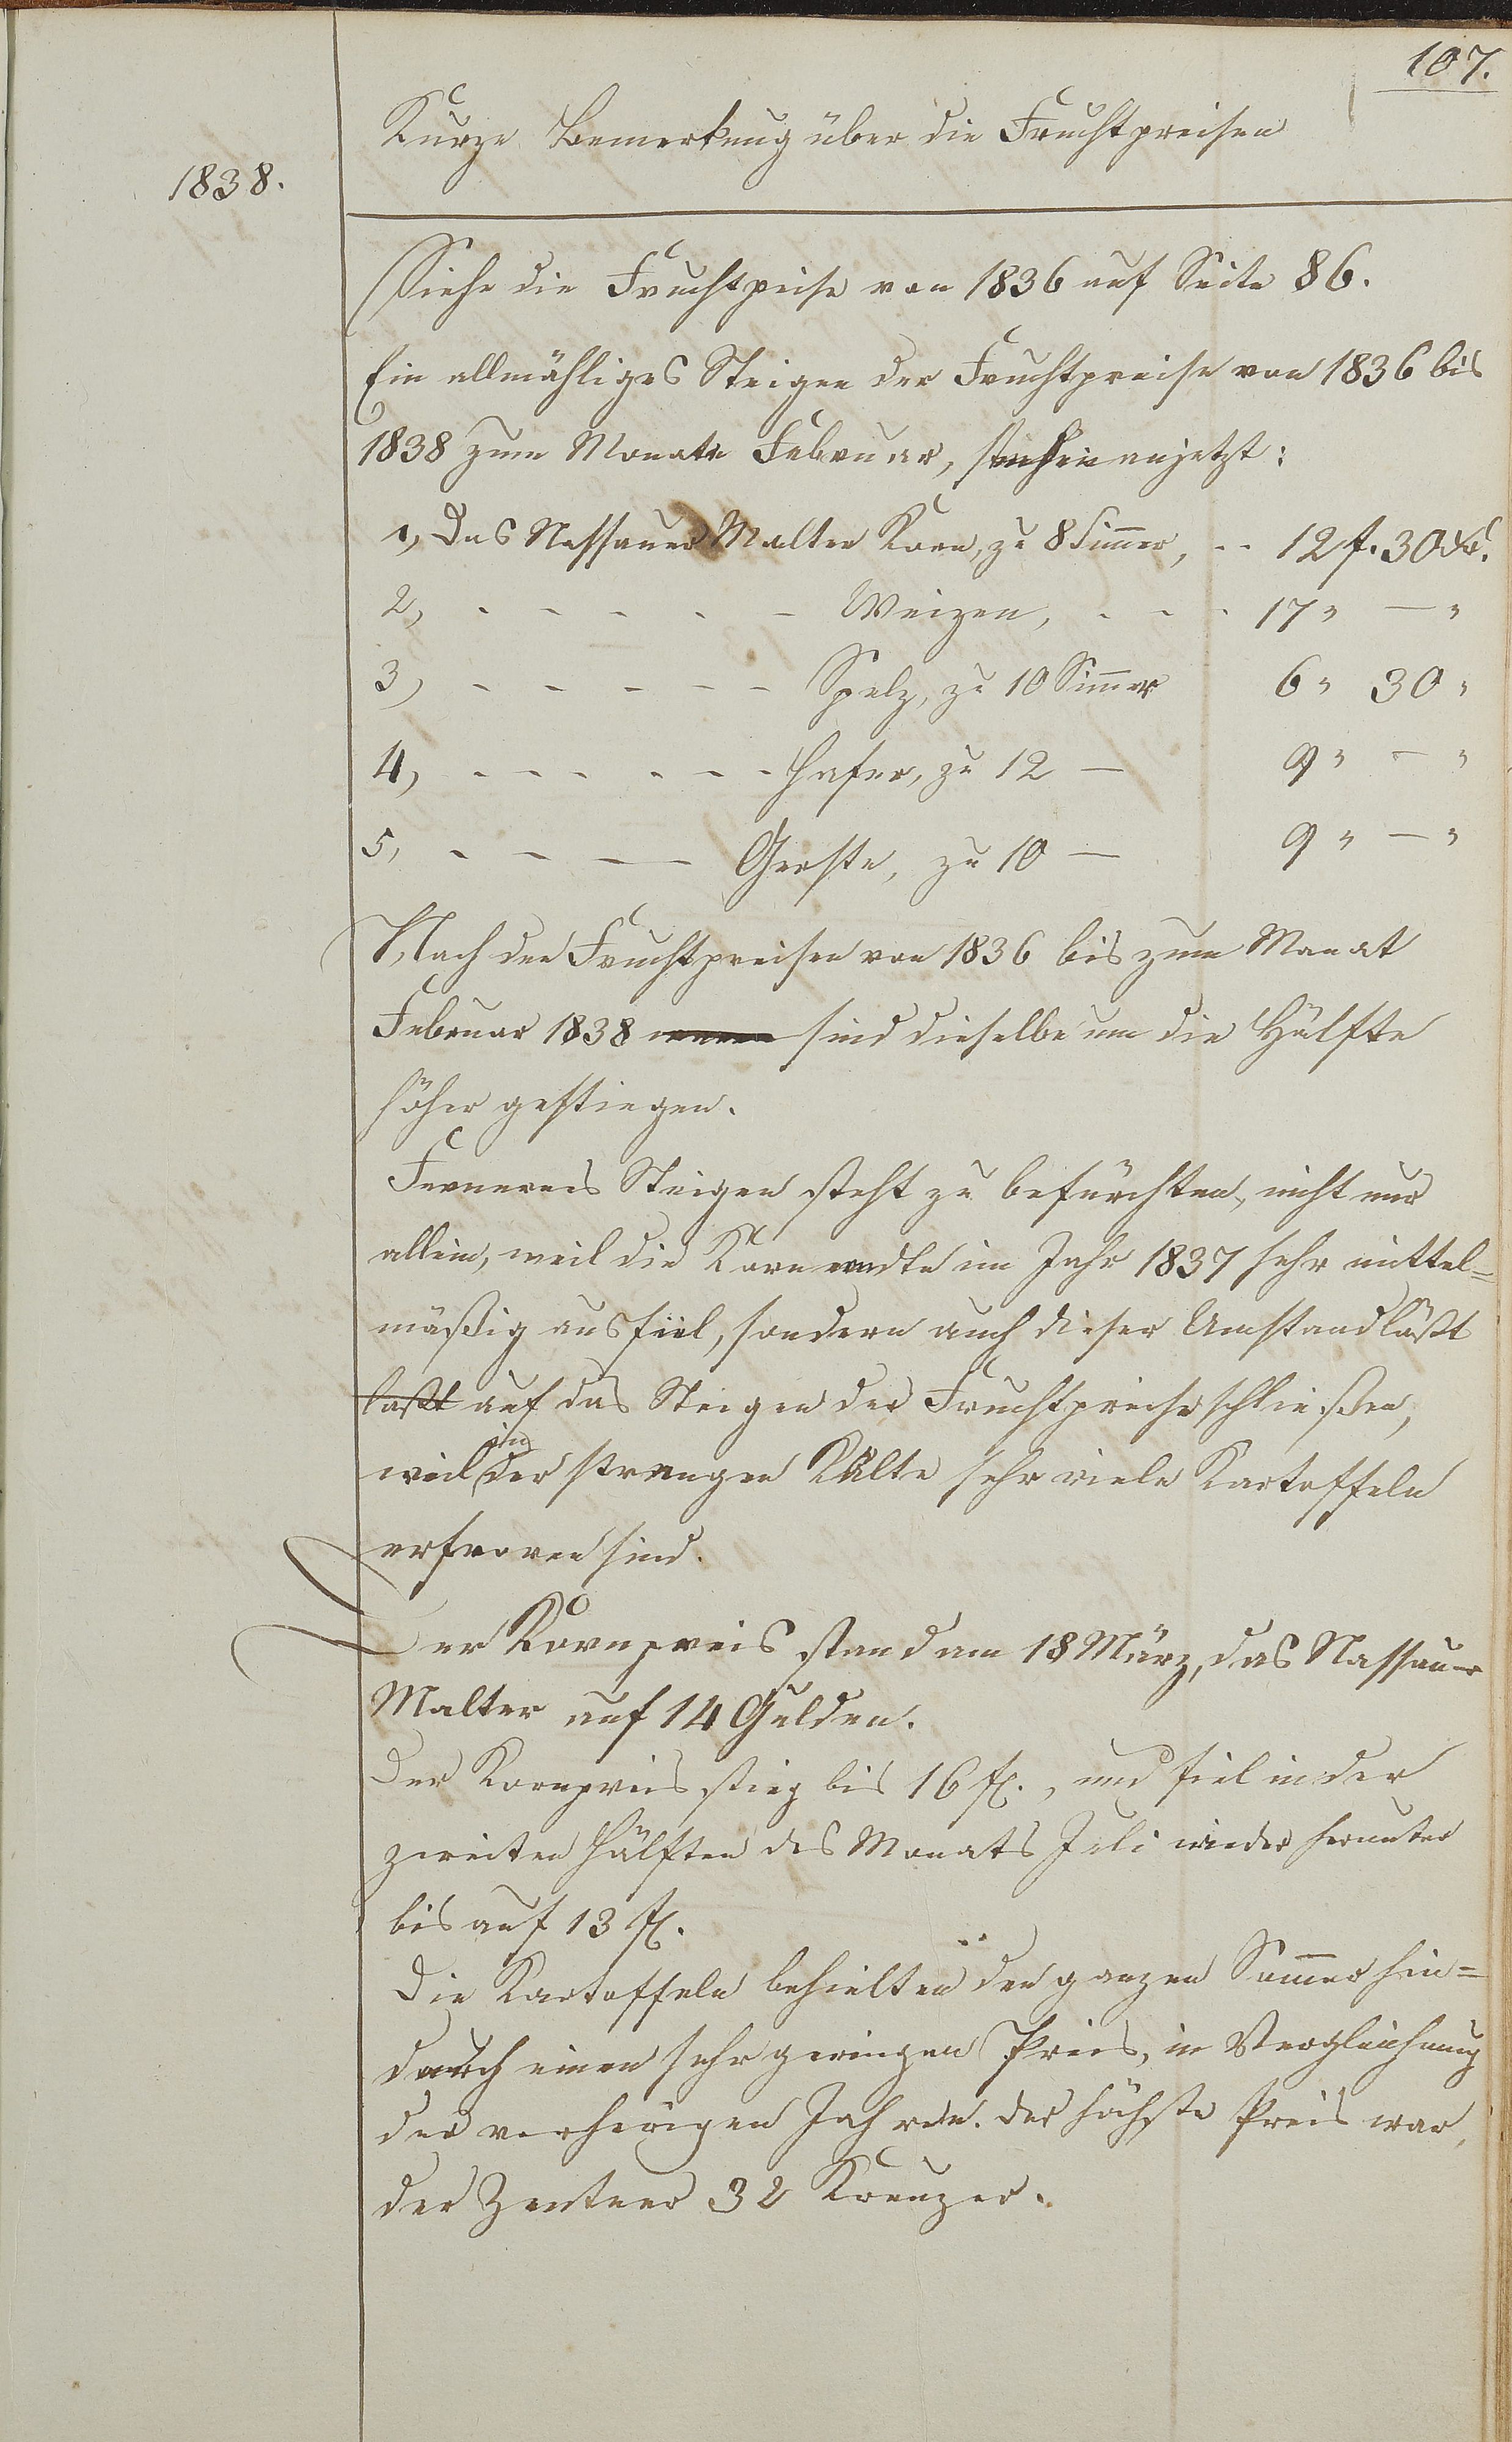 107.
Kurze Bemerkung über die Fruchtpreisen
1838.
(Siehe die Fruchtpeise von 1836 auf Seite 86.
Ein allmähliges Steigen der Fruchtpreise von 1836 bis
1838 zum Monate Februar, stehen anjetzt:
1, Das Nassauer Malter Korn, zu 8 Simer, - - 12 f. 30 Xr.
2, - - - - - - Weizen, - - - 17 " — "
3, - - - - - - Spelz, zu 10 Simer 6 " 30 "
4, - - - - - - - Hafer, zu 12 — 9 " — "
5, - - - — — Gerste, zu 10 — 9 " — "
Nach den Fruchtpreisen von 1836 bis zum Monat
Februar 1838 sind dieselbe um die Hälfte
höher gestiegen.
Ferneres Steigen steht zu befürchten, nicht nur
allein, weil die Kornerndte im Jahr 1837 sehr mittel=
mäßig ausfiel, sondern auch dieser Umstand läßt
laßt auf das Steigen der Fruchtpreise schließen,
weil in der strengen Kälte sehr viele Kartoffeln
erfroren sind.
Der Kornpreis stand am 18 März, das Nassauer
Malter auf 14 Gulden.
Der Kornpreis stieg bis 16 fl., und fiel in der
zweiten Hälften des Monats Juli wieder herunter
bis auf 13 fl.
Die Kartoffeln behielten den ganzen Somer hin=
durch einen sehr geringen Preis, in Vergleichung
der vorherigen Jahren. Der höchste Preis war,
der Zentner 32 Kreuzer.